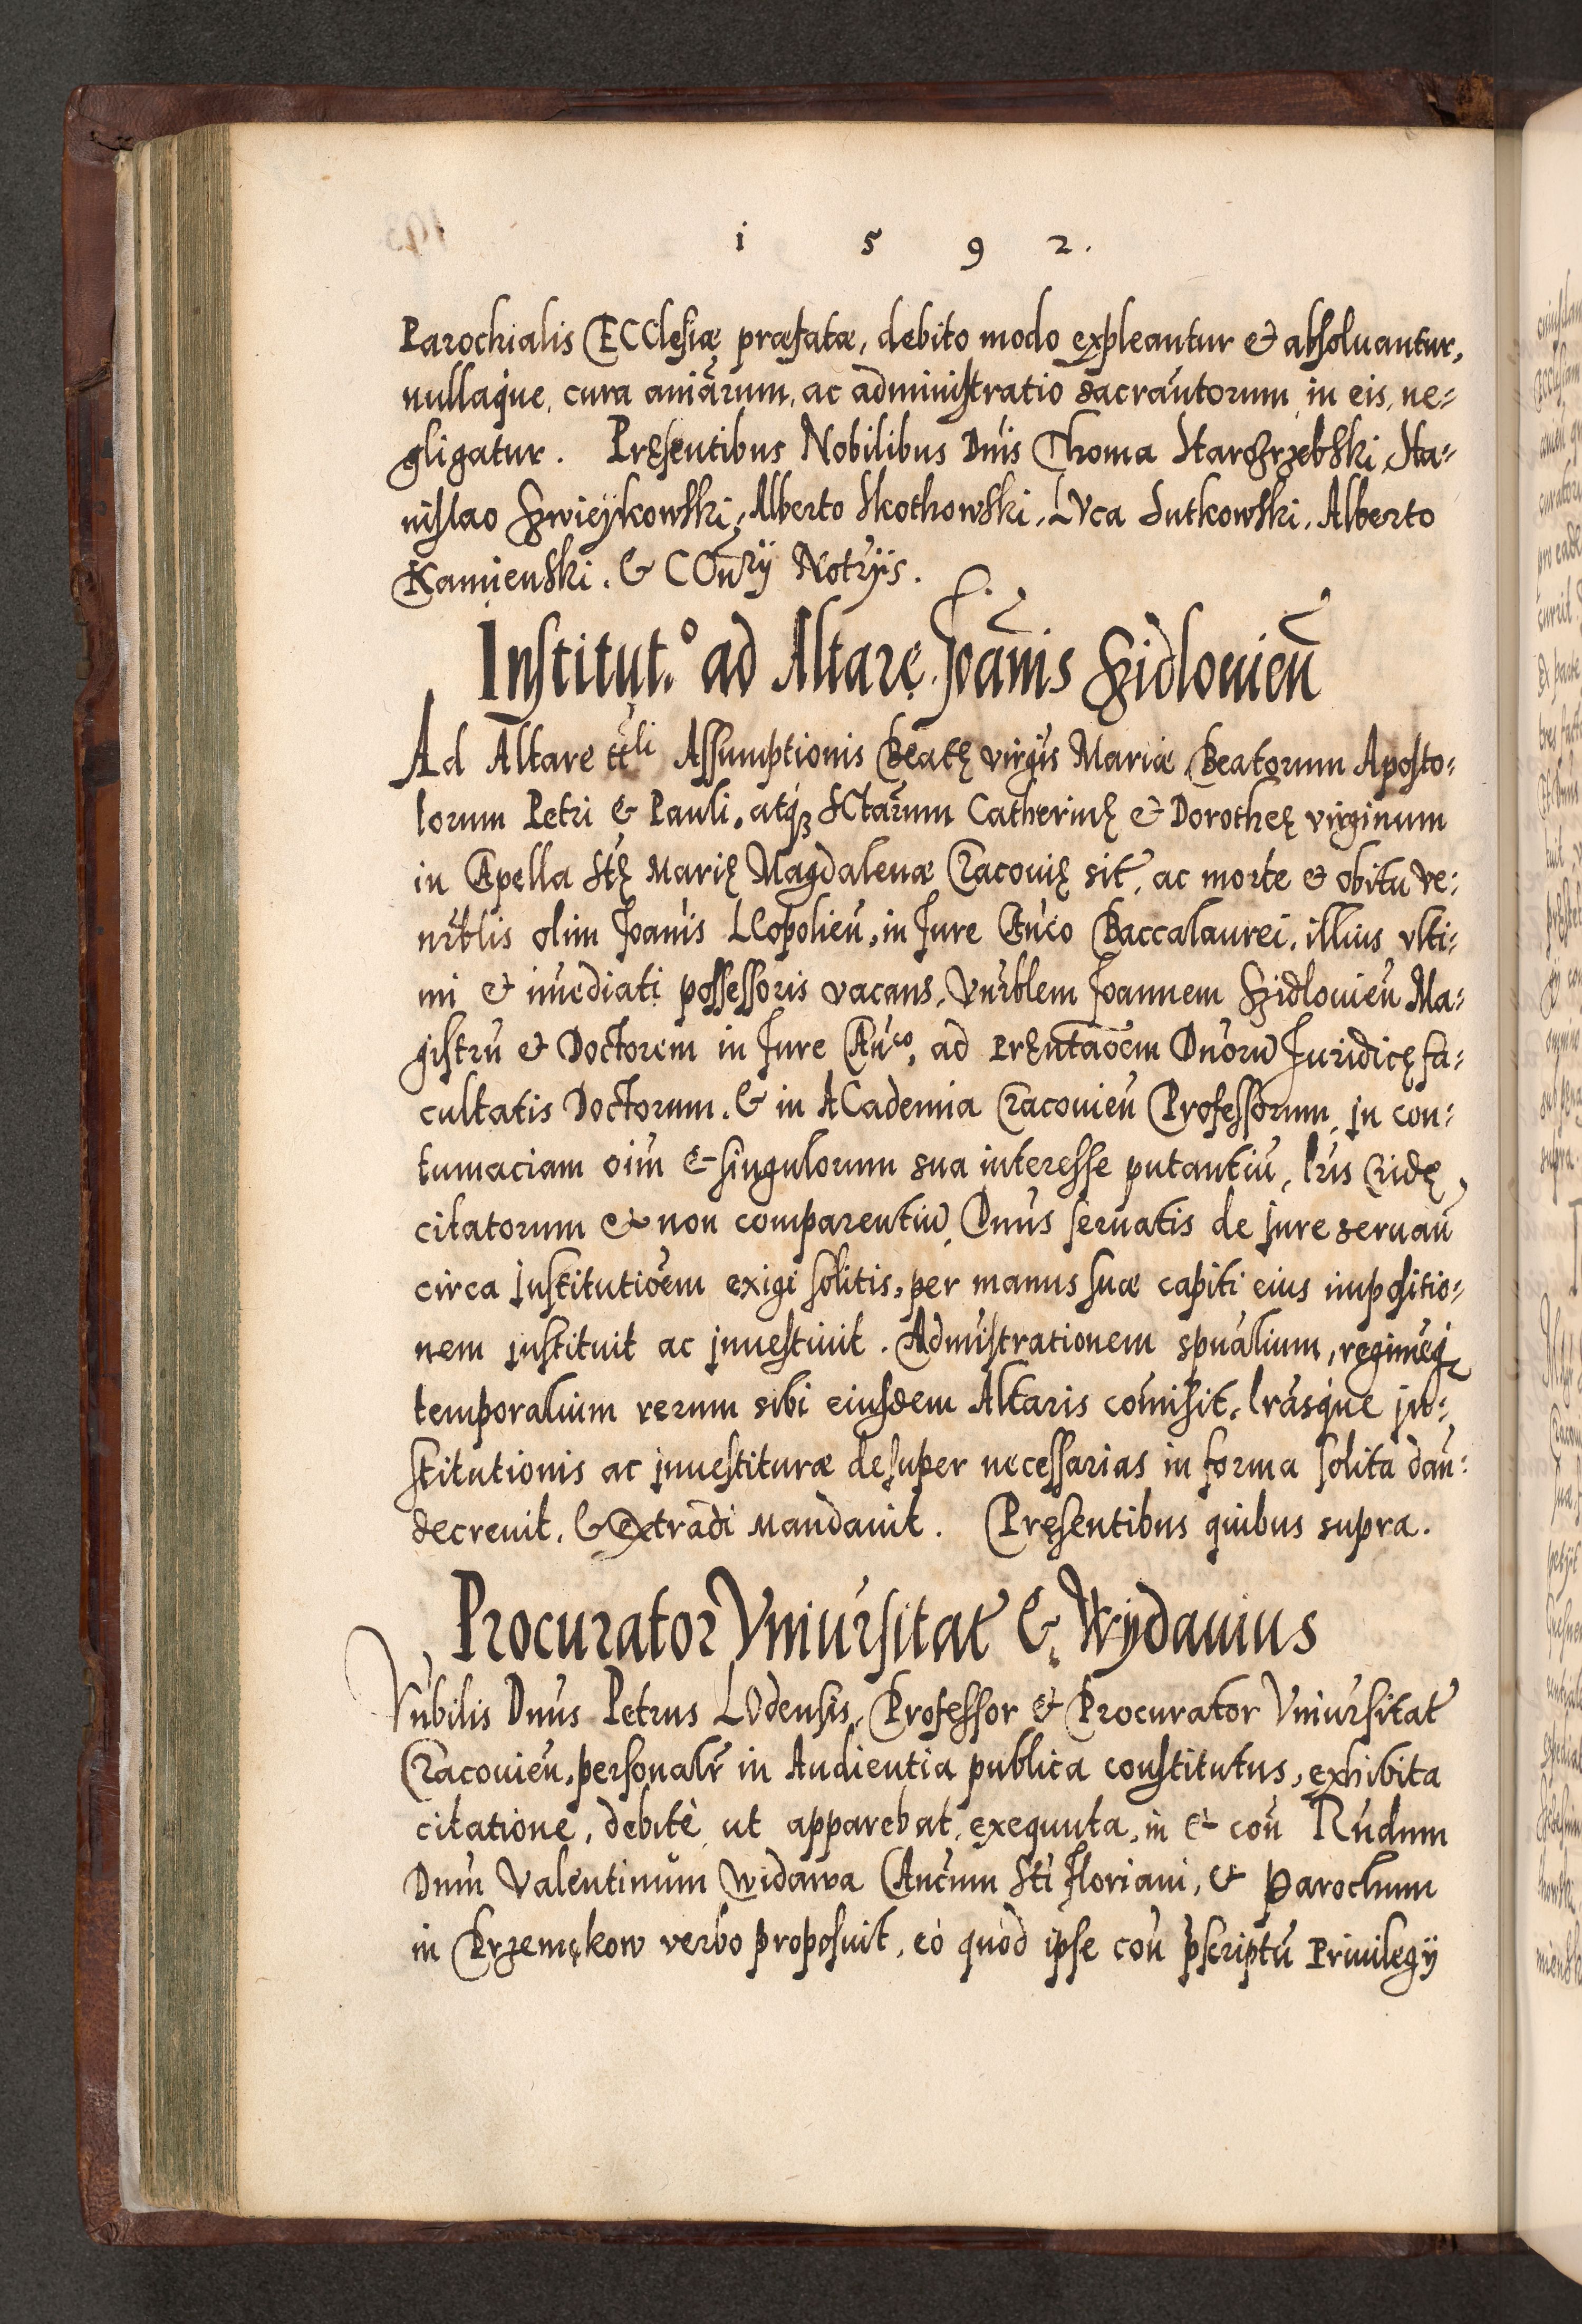 1 5 9 2.
Parochialis ECClesiæ præfatæ, debito modo expleantur et absoluantur,
nullaque, cura aniārum, ac administratio sacrāntorum in eis, ne-
gligatur. Pręsentibus Nobilibus Dnis Thoma Starczrzebski, Sta-
nislao Szwieykowski, Alberto Skothowski, LVca Sutkowski, Alberto
Kamienski. & COn̄ry Not̄rijs.
Institut.º ad Altare Joānnis Szidlouien̄
Ad Altare tt̄li Assumptionis Beatę virgīs Mariæ Beatorum Aposto-
lorum Petri & Pauli, atq́ꝫ SCtārum Catherinę et Dorotheę virginum
in CApella Stę Marię Magdalenæ Cracouię sit̄, ac morte et obitu ve-
nr̄blis olim Joānis LEopolien̄, in Jure CAn̄co Baccalaurei, illius vlti-
mi et im̄ediati possessoris vacans, Vnr̄blem Joannem Szidlouien̄ Ma-
gistrū et Doctorem in Jure CAn̄co, ad Pręntāoēm Dn̄orū Juridicę fa-
cultatis Doctorum, & in ACademia Cracouien̄ Professorum, in con-
tumaciam oīm & singulorum sua interesse putantiū, lr̄is Cridę
citatorum et non comparentiū, Dnus seruatis de jure seruan̄
circa Institutiōem exigi solitis, per manus suæ capiti eius impositio-
nem instituit ac inuestiuit. Admīstrationem spūalium, regimēq̨
temporalium rerum sibi eiusdem Altaris com̄isit, lrāsque in-
stitutionis ac inuestituræ desuper necessarias in forma solita dan̄-
decreuit, & extrādi Mandauit. Pręsentibus quibus supra.
Procurator Vniūrsitat̄ & Wydauius
Vn̄bilis Dnus Petrus LOdensis, Professor et Procurator Vniūrsitat̄
Cracouien̄, personalr̄ in Audientia publica constitutus, exhibita
citatione, debitè ut apparebat, exequuta, in et con̄ Rn̄dum
Dnm̄ Valentinum Widawa CAn̄cum Sti Floriani, et Parochum
in Krzemękow verbo proposuit, eò quòd ipse con̄ pscriptū Priuilegij